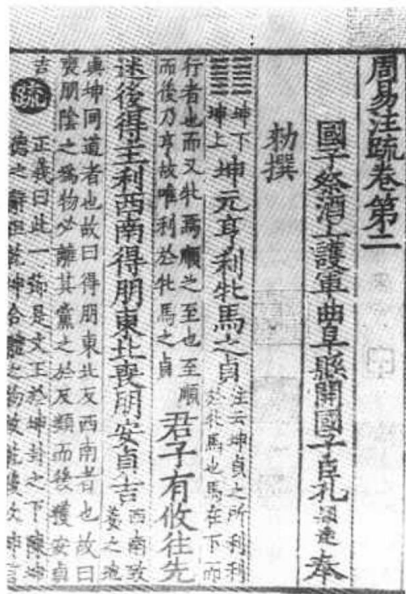 周易注疏卷第二
國子祭酒上護軍曲阜縣開國子臣孔穎達奉
勑撰
坤下坤上坤元亨利牝馬之貞注云坤貞之所利利於牝馬也馬在下而
行者也而又牝馬順之至也至順而後乃亨故唯利於牝馬之貞君子有攸往先
迷後得主利西南得朋東北喪朋安貞吉西南致養之地
與坤同道者也故曰得朋東北反西南者也故曰
喪朋陰之爲物必離其黨之於反類而後獲安貞
吉疏正義曰此一節是文王於坤卦之下陳坤
德之辭但乾坤合體之物故乾後次坤言